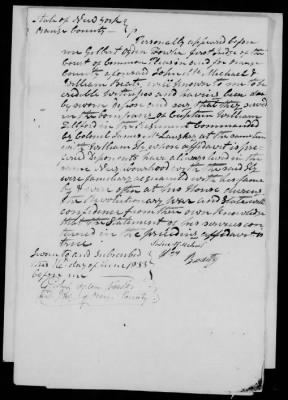 State of New York }
Orange County }
Personally appeared before
me Gilbert Ogden Fowler first Judge of the
Court of Common Pleas in and for Orange
County aforesaid John Mc Michael &
William Beaty well known to me to be
credible witnesses and having been du
by sworn depose and say that they served
in the company of Captain William
in the Regiment Commanded
by Colonel James at the same time
with William whose affidavit is pre
fixed deponents have always lived in the
same Neighbourhood with the said
were familiarly acquainted with him
& were often at his House during
the Revolutionary War and State with
confidence from their own Knowledge
that the Statement of his services con
tained in the preceding affidavit is
true
John Mc Michael
Wm Beaty
Sworn to and Subscribed
this day of June 1833
before me
Gilbert Ogden Fowler
first Judge of Orange County